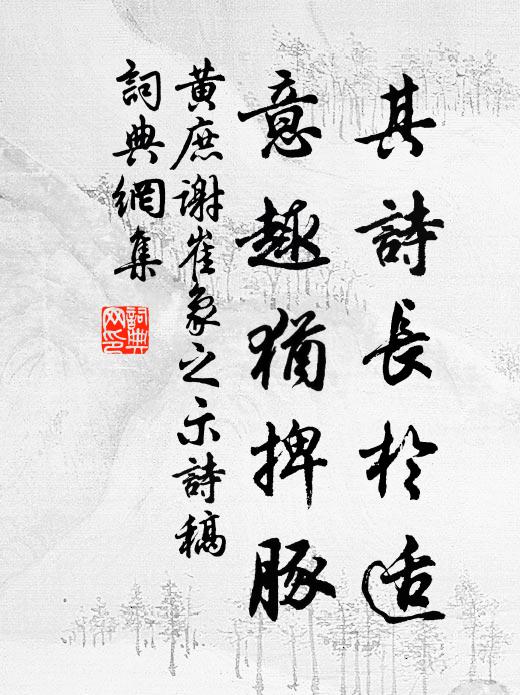 其詩長於适
意趣猶捭豚
黃庶謝崔象之示詩稿
詞典網集
詞典
网印